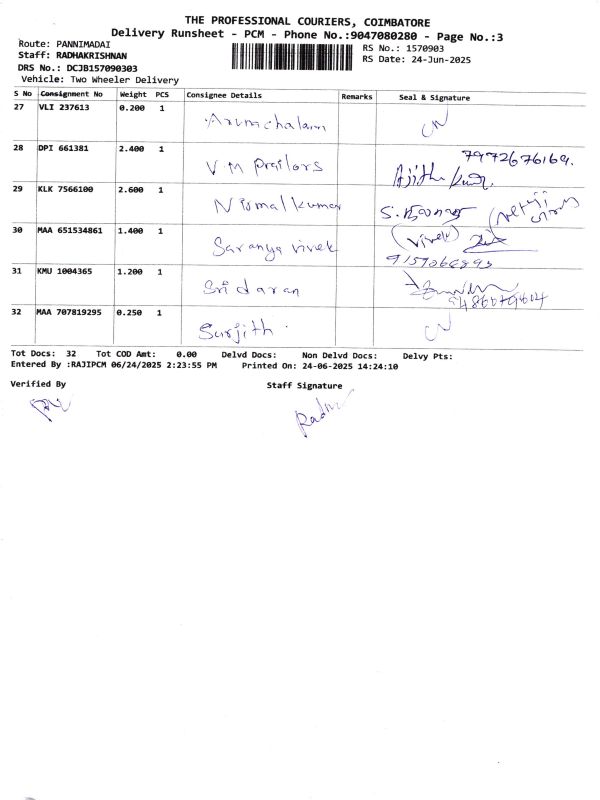 THE PROFESSIONAL COURIERS, COIMBATORE
Delivery Runsheet - PCM - Phone No.:9047080280 - Page No.:3
Route: PANNIMADAI
RS No.: 1570903
Staff: RADHAKRISHNAN
RS Date: 24-Jun-2025
DRS No.: DCJB157090303
Vehicle: Two Wheeler Delivery
S No Consignment No Weight PCS Consignee Details Remarks Seal & Signature
27 VLI 237613 0.200 1 Arunchalam CN
28 DPI 661381 2.400 1 V M Prailors 7972676169. Ajith Kumar.
29 KLK 7566100 2.600 1 Nirmal kumar
30 MAA 651534861 1.400 1 Saranya vivek (vivek)
9157066893
31 KMU 1004365 1.200 1 Sridaran
32 MAA 707819295 0.250 1 Surjith. CN
Tot Docs: 32 Tot COD Amt: 0.00 Delvd Docs: Non Delvd Docs: Delvy Pts:
Entered By :RAJIPCM 06/24/2025 2:23:55 PM Printed On: 24-06-2025 14:24:10
Verified By Staff Signature
Radha